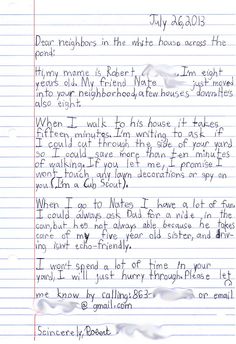 July 26, 2013
Dear neighbors in the white house across the
pond:
Hi, my name is Robert . I'm eight
years old. My friend Nate just moved
into your neighborhood, a few houses down. He's
also eight.
When I walk to his house it takes
fifteen minutes. I'm writing to ask if
I could cut through the side of your yard
so I could save more than ten minutes
of walking. If you let me, I promise I
wont touch any lawn decorations or spy on
you (I'm a Cub Scout).
When I go to Nates I have a lot of fun.
I could always ask Dad for a ride in the
car, but he's not always able because he takes
care of my five year old sister, and driv-
ing isnt echo-friendly.
I won't spend a lot of time in your
yard, I will just hurry through. Please let
me know by calling: 863- or email
@gmail.com
Scincerely, Robert